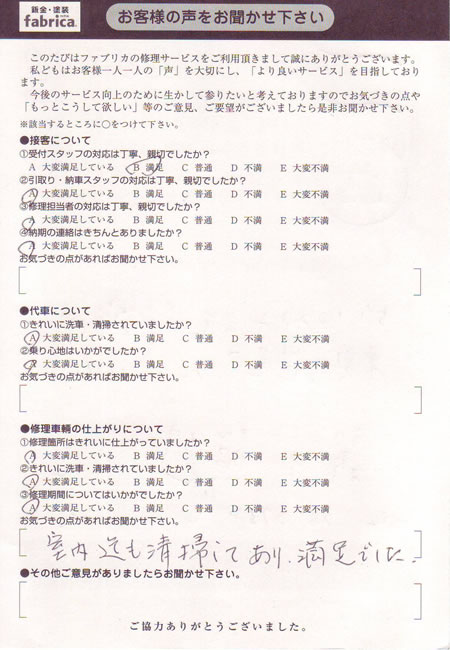 鈑金・塗装
fabrica.
お客様の声をお聞かせ下さい
このたびはファブリカの修理サービスをご利用頂きまして誠にありがとうございます。
私どもはお客様一人一人の「声」を大切にし、「より良いサービス」を目指しており
ます。
今後のサービス向上のために生かして参りたいと考えておりますのでお気づきの点や
「もっとこうして欲しい」等のご意見、ご要望がございましたら是非お聞かせ下さい。
※該当するところに○をつけて下さい。
●接客について
①受付スタッフの対応は丁寧、親切でしたか?
A 大変満足している B 満足 C 普通 D 不満 E 大変不満
②引取り・納車スタッフの対応は丁寧、親切でしたか?
A 大変満足している B 満足 C 普通 D 不満 E 大変不満
③修理担当者の対応は丁寧、親切でしたか?
A 大変満足している B 満足 C 普通 D 不満 E 大変不満
④納期の連絡はきちんとありましたか?
A 大変満足している B 満足 C 普通 D 不満 E 大変不満
お気づきの点があればお聞かせ下さい。
●代車について
①きれいに洗車・清掃されていましたか?
A 大変満足している B 満足 C 普通 D 不満 E 大変不満
②乗り心地はいかがでしたか?
A 大変満足している B 満足 C 普通 D 不満 E 大変不満
お気づきの点があればお聞かせ下さい。
●修理車輌の仕上がりについて
①修理箇所はきれいに仕上がっていましたか?
A 大変満足している B 満足 C 普通 D 不満 E 大変不満
②きれいに洗車・清掃されていましたか?
A 大変満足している B 満足 C 普通 D 不満 E 大変不満
③修理期間についてはいかがでしたか?
A 大変満足している B 満足 C 普通 D 不満 E 大変不満
お気づきの点があればお聞かせ下さい。
室内迄も清掃してあり、満足でした。
●その他ご意見がありましたらお聞かせ下さい。
ご協力ありがとうございました。